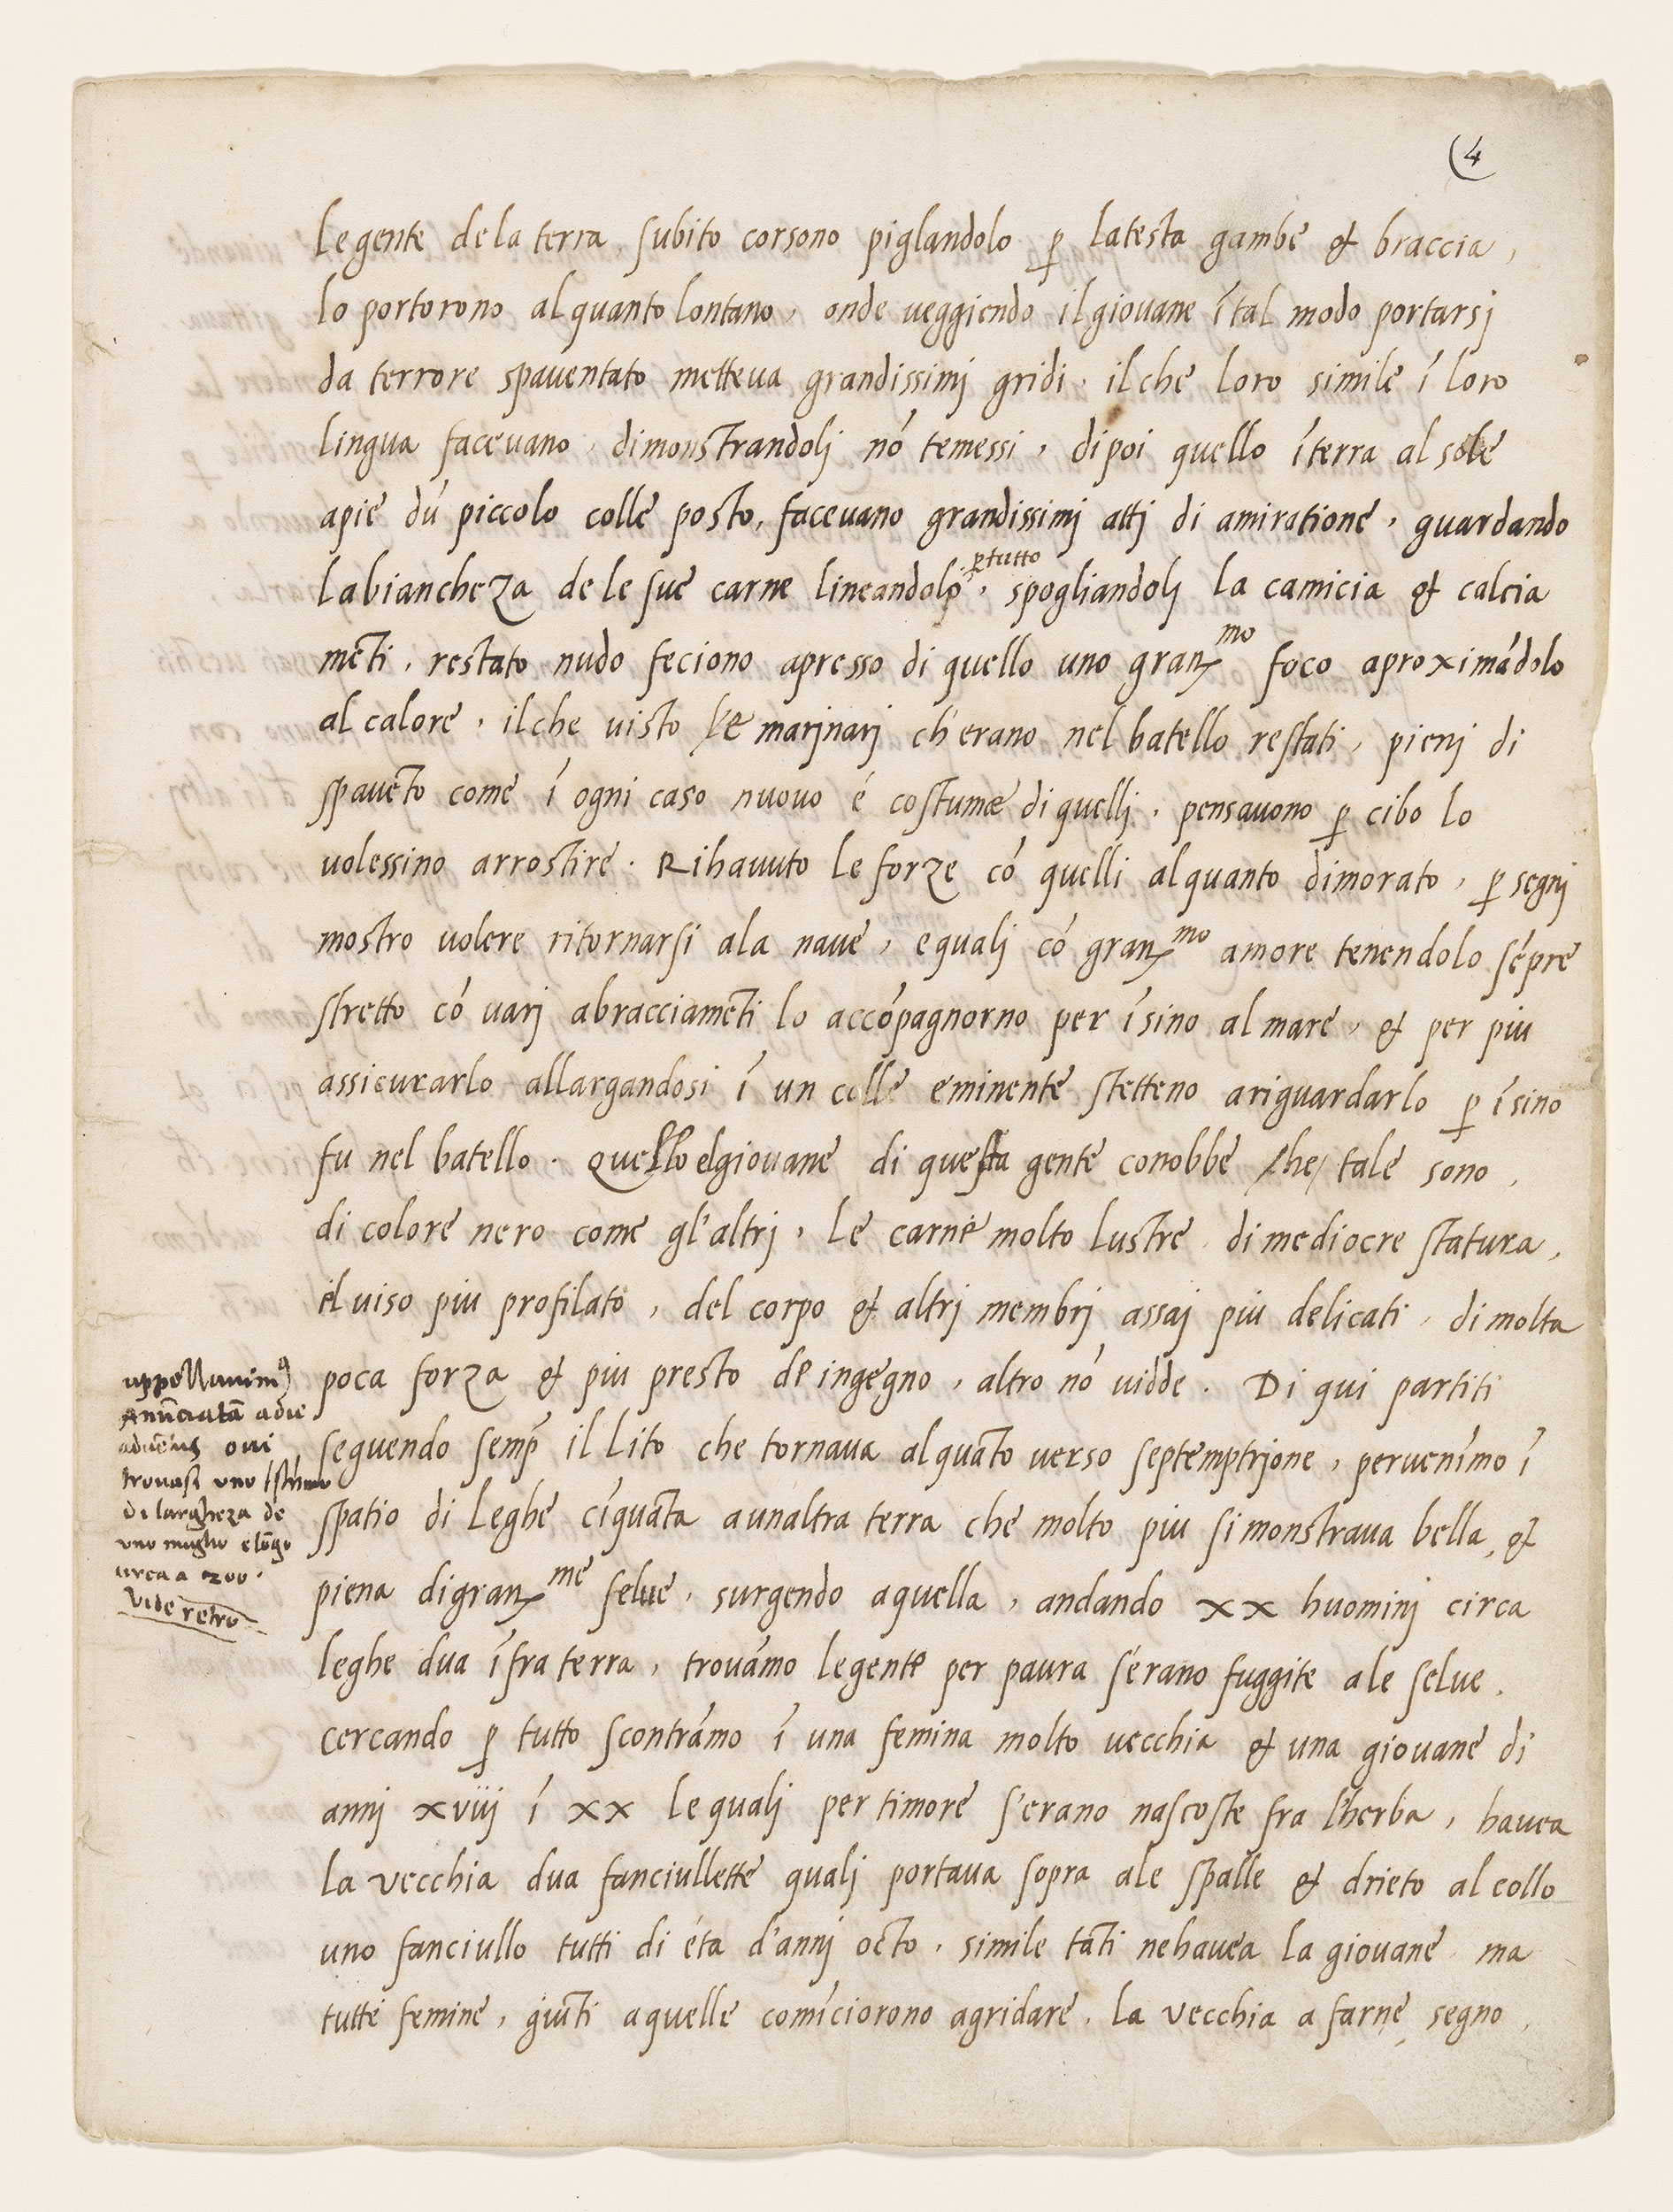 (4
le gente de la terra, subito corsono piglandolo p̱ la testa gambe & braccia,
lo portorono alquanto lontano, onde veggiendo il giovane ī tal modo portarsj
da terrore spaventato metteva grandissimj gridi, il che loro simile ī loro
lingua facevano, dimonstrandolj nō temessi, dipoi quello ī terra al sole
a pie dū piccolo colle posto, facevano grandissimj atti di amiratione, guardando
la biancheza de le sue carne lineandolo p̱ tutto, spogliandolj la camicia & calcia
mēti, restato nudo feciono apresso di quello uno granᵐᵒ foco aproximādolo
al calore, il che visto le marjnarj ch'erano nel batello restati, pienj di
spavēto come ī ogni caso nuovo é costume di quelli, pensavono p̱ cibo lo
volessino arrostire. Rihavuto le forze cō quelli alquanto dimorato, p̱ segnj
mostro volere ritornarsi a la nave, e qualj cō granᵐᵒ amore tenendolo sēpre
stretto cō varj abracciamēti lo accōpagnorno per īsino al mare, & per piu
assicurarlo allargandosi ī un colle eminente stetteno a riguardarlo p̱ īsino
fu nel batello. Quello el giovane di questa gente conobbe che tale sono,
di colore nero come gl'altrj, le carne molto lustre di mediocre statura,
il viso piu profilato, del corpo & altrj membrj assaj piu delicati, di molta
poca forza & piu presto de ingegno, altro nō vidde. Di qui partiti
seguendo semp̱ il lito che tornava alquāto verso septemptrjone, pervenīmo ī
spatio di leghe cīquāta a unaltra terra che molto piu si monstrava bella, &
piena di granᵐᵉ selve, surgendo a quella, andando xx huominj circa
leghe dua īfra terra, trovāmo le gente per paura s'erano fuggite a le selve,
cercando p̱ tutto scontrāmo ī una femina molto vecchia & una giovane di
annj xviij ī xx le qualj per timore s'erano nascoste fra l'herba, havea
la vecchia dua fanciullette qualj portava sopra a le spalle & drieto al collo
uno fanciullo tutti di éta d'annj octo, simile tāti ne havea la giovane ma
tutte femine, giūti a quelle comīciorono a gridare, la vecchia a farne segno,
appellavimꝰ
Annūciatā a die
advētus ovi
trovasi uno Istmo
di largheza de
uno miglio e lōgo
circa a 200.
vide retro